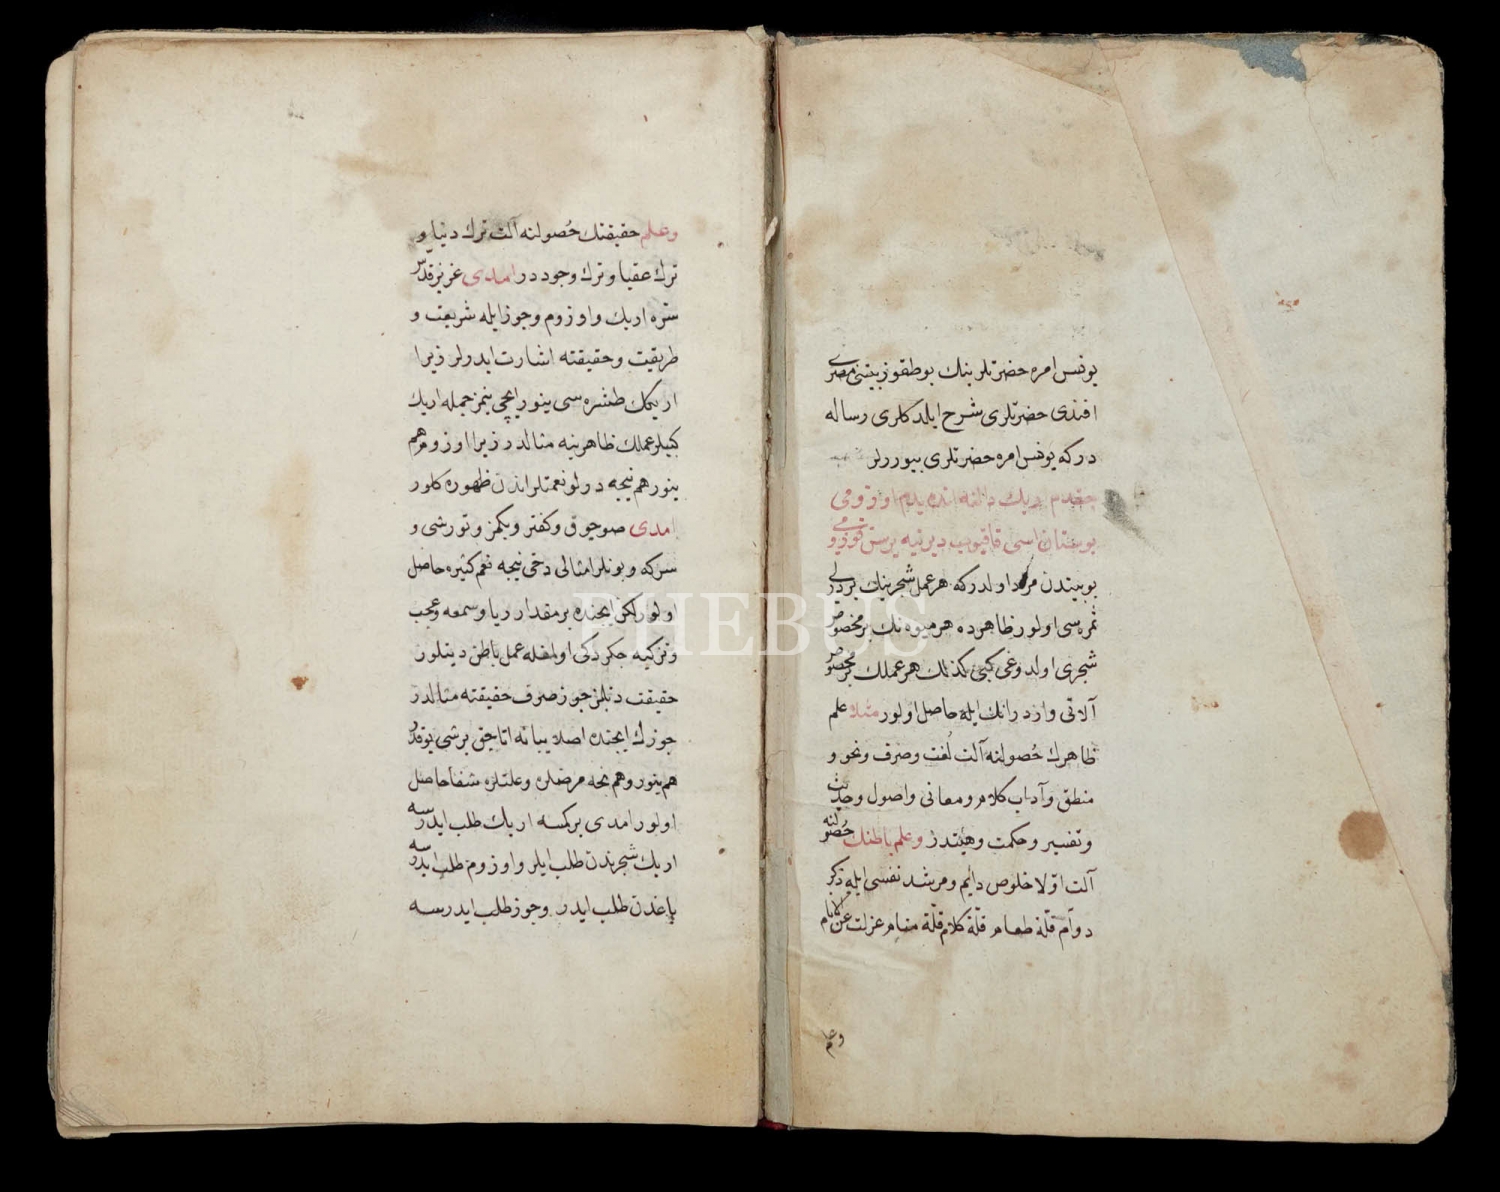 يونس امره حضرتلرينك بو طقوز بيتنى مصرى
افندى حضرتلرى شرح ايلدكلرى رساله
دركه يونس امره حضرتلرى بيوررلر
چقدم اريك دالنه انده يدم اوزومى
بوستان اسى قاقيوب ديرنيه يرسن قوزومى
بو بيتدن مراد اولدركه هر عمل شجرينك بر درلى
ثمره سى اولور ظاهرده هر ميوه نك بر مخصوص
شجرى اولدوغى كبى كذلك هر عملك بر مخصوص
آلاتى واردر انك ايله حاصل اولور مثلا علم
ظاهرك حُصولنه آلت لُغت وصرف ونحو و
منطق وآداب كلام ومعانى واصول وحديث
وتفسير وحكمت وهيئتدر وعلم باطنك حُصولنه
آلت اوّلا خلوص دايم ومرشد نفسى ايله ذكر
دوام قلّة طعام قلّة كلام قلّة منام عزلت عن الانام
وعلم
وعلم حقيقتك حُصولنه آلت ترك دنيا و
ترك عقبا وترك وجوددر امدى عزيز قدّس
سرّه اريك واوزوم وجوز ايله شريعت و
طريقت وحقيقته اشارت ايدرلر زيرا
اريكك طشره سى ينور ايچى ينمز جمله اريك
كبيلر عملك ظاهرينه مثالدر زيرا اوزوم هم
ينور هم نيجه درلو نعمتلر اندن ظهوره كلور
امدى صوجوق وكفتر وپكمز وتورشى و
سركه وبونلر امثالى دخى نيجه نعم كثيره حاصل
اولور لكن ايچنده بر مقدار ريا وسمعه وعجب
وتزكيه چكردكى اولمغله عمل باطن دينلور
حقيقت دينلمز جوز صرف حقيقته مثالدر
جوزك ايچنده اصلا يبانه اتاجق بر شى يوقدر
هم ينور وهم نجه مرضلره وعلتلره شفا حاصل
اولور امدى بر كمسه اريك طلب ايدرسه
اريك شجرندن طلب ايلر واوزوم طلب ايدرسه
باغدن طلب ايدر وجوز طلب ايدرسه
PHEBUS